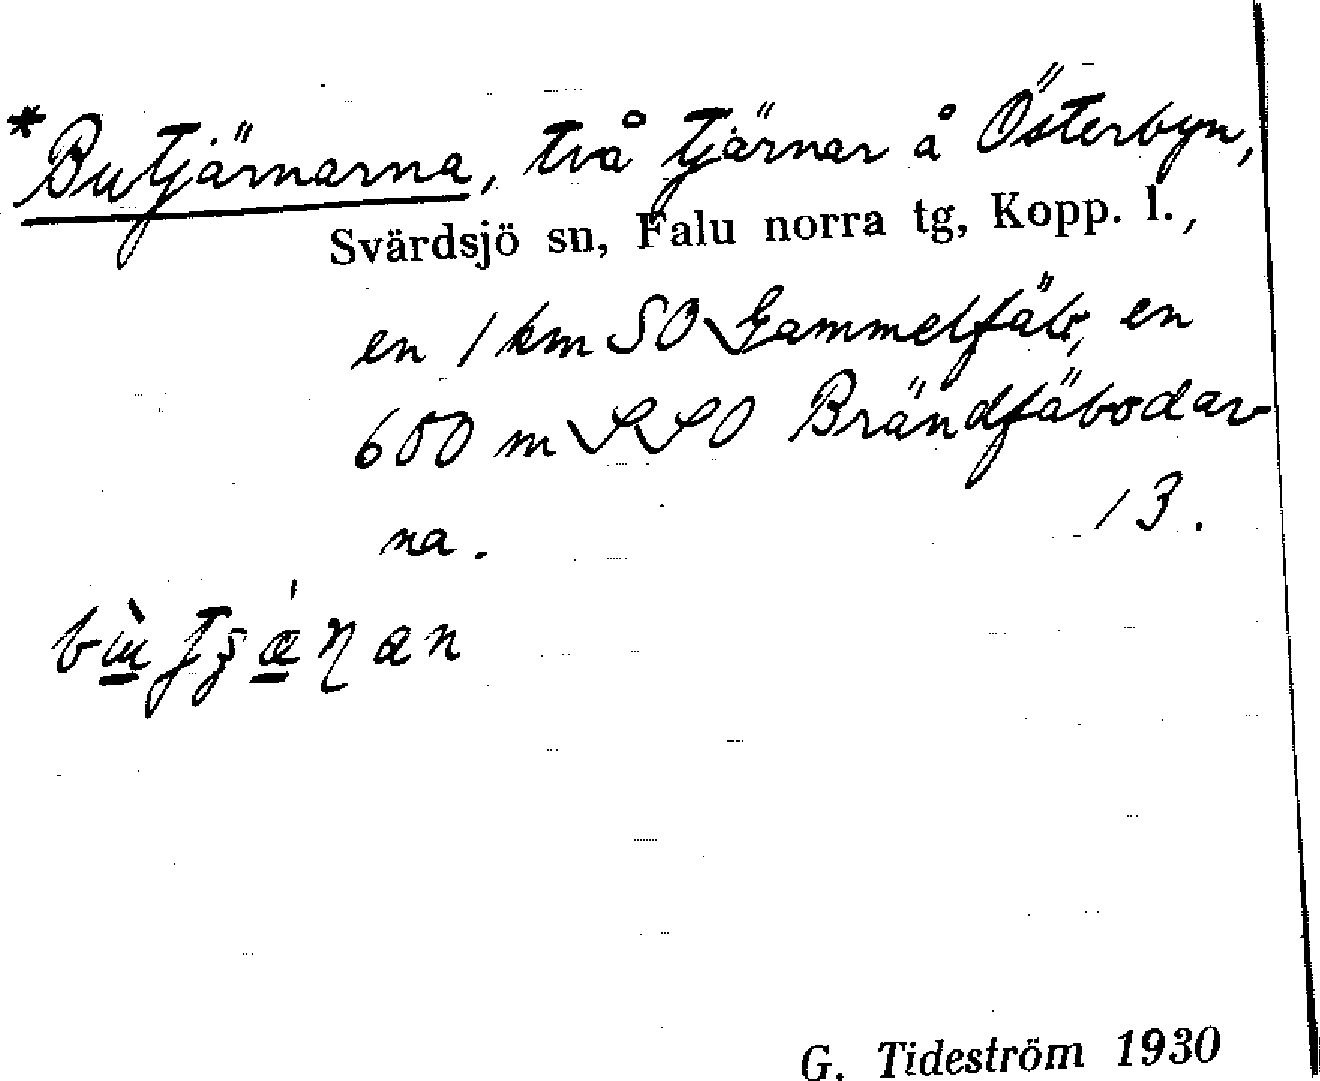 *Butjärnarna, två tjärnar å Österbyn,
Svärdsjö sn, Falu norra tg, Kopp. l.,
en 1 km SO Gammelfäb, en
600 m SSO Brändfäbodar-
na. 13.
G. Tideström 1930